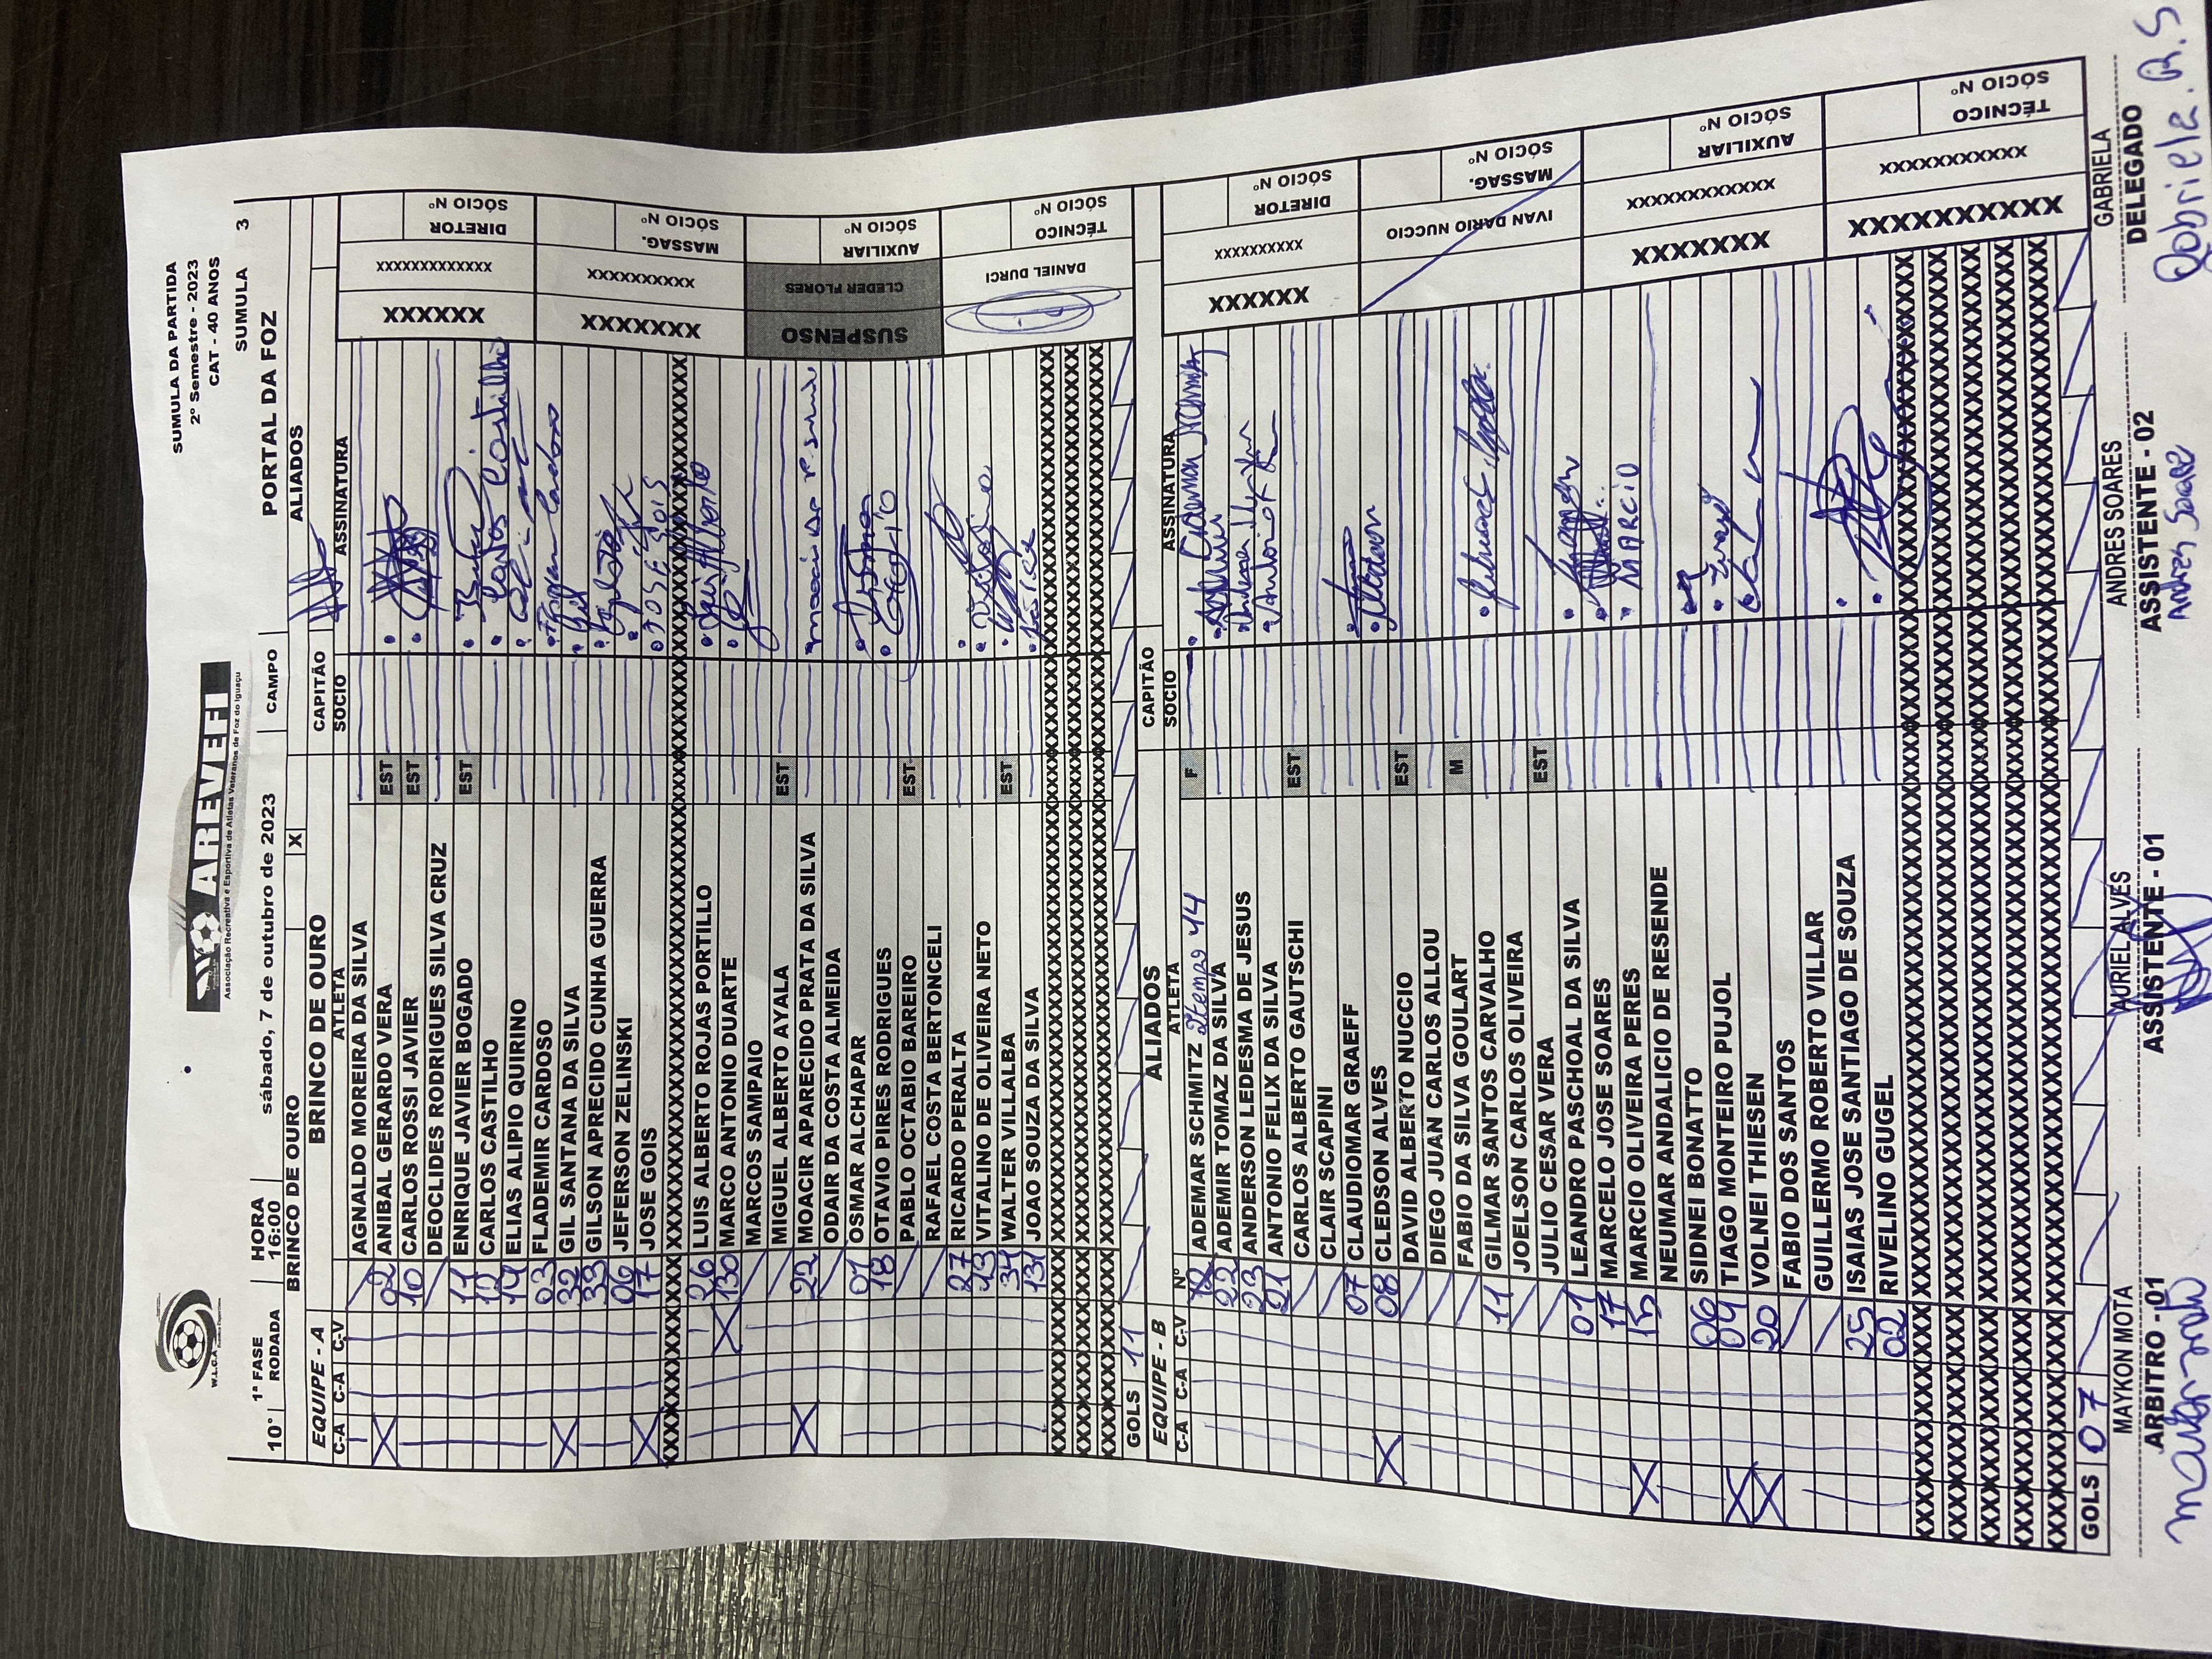 SUMULA DA PARTIDA
2º Semestre - 2023
CAT - 40 ANOS
W.L.C.A
AREVEFI
Associação Recreativa e Esportiva de Atletas Veteranos de Foz do Iguaçu
SUMULA 3
10° 1ª FASE RODADA HORA 16:00 sábado, 7 de outubro de 2023 CAMPO PORTAL DA FOZ
BRINCO DE OURO X ALIADOS
EQUIPE - A BRINCO DE OURO CAPITÃO
C-A C-A C-V ATLETA SOCIO ASSINATURA
AGNALDO MOREIRA DA SILVA
02 ANIBAL GERARDO VERA EST
10 CARLOS ROSSI JAVIER EST
DEOCLIDES RODRIGUES SILVA CRUZ
11 ENRIQUE JAVIER BOGADO EST
CARLOS CASTILHO Carlos Castilho
ELIAS ALIPIO QUIRINO
03 FLADEMIR CARDOSO
32 GIL SANTANA DA SILVA Gil
33 GILSON APRECIDO CUNHA GUERRA
06 JEFERSON ZELINSKI
17 JOSE GOIS JOSE GOIS
XXXXXXXXXXXXXXXXXXXXXXXX
26 LUIS ALBERTO ROJAS PORTILLO
130 MARCO ANTONIO DUARTE
MARCOS SAMPAIO
MIGUEL ALBERTO AYALA EST
22 MOACIR APARECIDO PRATA DA SILVA
ODAIR DA COSTA ALMEIDA
01 OSMAR ALCHAPAR
18 OTAVIO PIRES RODRIGUES
PABLO OCTABIO BAREIRO EST
RAFAEL COSTA BERTONCELI
27 RICARDO PERALTA
VITALINO DE OLIVEIRA NETO
34 WALTER VILLALBA EST
131 JOAO SOUZA DA SILVA
DIRETOR SÓCIO Nº XXXXXXXXXXXXX XXXXXX
MASSAG. SÓCIO Nº XXXXXXXXXX XXXXXXX
AUXILIAR SÓCIO Nº CLEDER FLORES SUSPENSO
TÉCNICO SÓCIO Nº DANIEL DURCI
GOLS 11
EQUIPE - B ALIADOS CAPITÃO
C-A C-A C-V Nº ATLETA SOCIO ASSINATURA
ADEMAR SCHMITZ 2tempo 44 F
22 ADEMIR TOMAZ DA SILVA
23 ANDERSON LEDESMA DE JESUS
21 ANTONIO FELIX DA SILVA
CARLOS ALBERTO GAUTSCHI EST
CLAIR SCAPINI
07 CLAUDIOMAR GRAEFF
08 CLEDSON ALVES
DAVID ALBERTO NUCCIO EST
DIEGO JUAN CARLOS ALLOU
FABIO DA SILVA GOULART M
11 GILMAR SANTOS CARVALHO
JOELSON CARLOS OLIVEIRA
JULIO CESAR VERA EST
01 LEANDRO PASCHOAL DA SILVA
17 MARCELO JOSE SOARES
15 MARCIO OLIVEIRA PERES MARCIO
NEUMAR ANDALICIO DE RESENDE
06 SIDNEI BONATTO
09 TIAGO MONTEIRO PUJOL
20 VOLNEI THIESEN
FABIO DOS SANTOS
GUILLERMO ROBERTO VILLAR
25 ISAIAS JOSE SANTIAGO DE SOUZA
02 RIVELINO GUGEL
DIRETOR SÓCIO Nº XXXXXXXXXX XXXXXX
MASSAG. SÓCIO Nº IVAN DARIO NUCCIO
AUXILIAR SÓCIO Nº XXXXXXXXXXXXX XXXXXXX
TÉCNICO SÓCIO Nº XXXXXXXXXXXX XXXXXXXXXX
GOLS 07
MAYKON MOTA AURIEL ALVES ANDRES SOARES GABRIELA
ARBITRO -01 ASSISTENTE - 01 ASSISTENTE - 02 DELEGADO
Andres Soares Gabriela. R. S